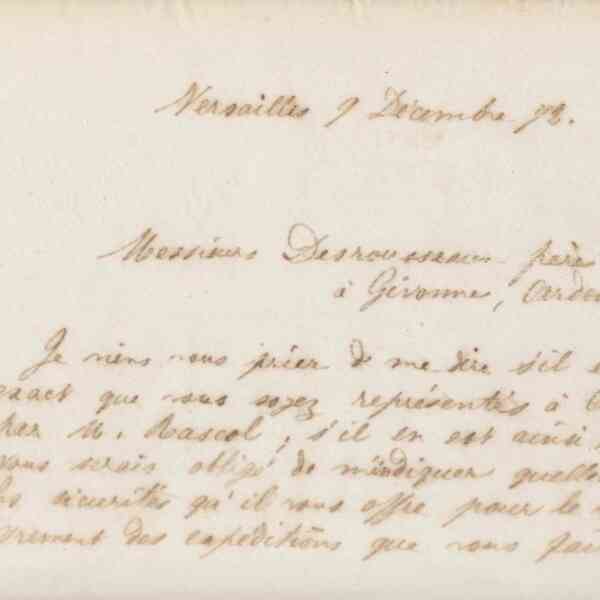 Versailles 9 Décembre 92.
Messieurs Desrousseaux père
à Givonne, Arden
Je viens vous prier de me dire s'il e
exact que vous soyez représentés à
par M. Rascol, s'il en est ainsi
vous serais obligé de m'indiquer quelle
les sécurités qu'il vous offre pour le
des expéditions que vous fai